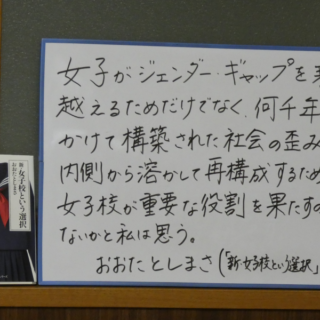 女子がジェンダー・ギャップを
越えるためだけでなく、何千年
かけて構築された社会の歪み
内側から溶かして再構成するため
女子校が重要な役割を果たすの
ないかと私は思う。
おおたとしまさ(「新・女子校という選択」
新・女子校という選択
おおたとしまさ